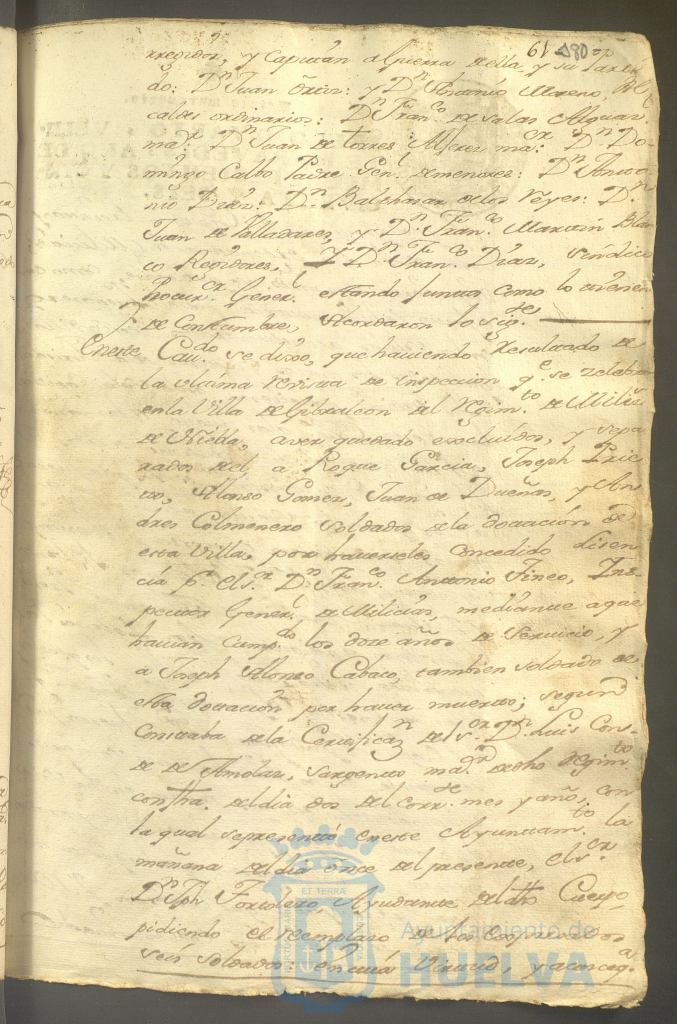 61 180
rregidor, y Capitán a Guerra de ella y su Parti
do: Dn Juan Ortiz: y Dn Antonio Moreno, Al
caldes ordinarios: Dn Franco de Salas Alguacil
mar. Dn Juan de torres Alferez maor: Dn Do-
mingo Calbo Padre Genl de menores: Dn Anto
nio Diaz: Dn Balthasar de los Reyes: Dn
Juan de Valladares, y Dn Franco Martin Blan
co Regidores, y Dn Franco Diaz, Sindico
Procuror Generl estando juntos como lo tienen
de Constumbre, Acordaron lo sigte
Eneste Cavdo se dixo, que haviendo Resultado de
la ultima revista de inspeccion qe se zelebro
enla Villa de Gibraleon del Regimto de Milizs
de Niebla, aver quedado excluidos, y sepa
rados del, a Roque Garcia, Joseph Prie
to, Alonso Gomez, Juan de Dueñas, y An
dres Colmenero soldados de la dotación de
esta Villa, por haverseles concedido lisen
cia pr el Sr Dn Franco Antonio Tineo, Ins
pector Generl de Milicias, mediante a que
havian cumpdo los doze años de Servicio, y
a Joseph Alonso Cabaco, tambien soldado de
esta dotación por haver muerto; segun
Constaba de la Certificazn del Sor Dn Luis Con-
de de Amolaz, Sargento mayor de dho Regimto
con fha. del dia dos del corrte mes y año, con
la qual se presentó eneste Ayuntamto la
mañana del dia once del presente, el Sor
Dn Jph Fortolero Ayudante del dho Cuerpo
pidiendo el reemplazo de los expresados
seis soldados: en cuia Virtud, y a conseqa
ET TERRA
Ayuntamiento de
HUELVA